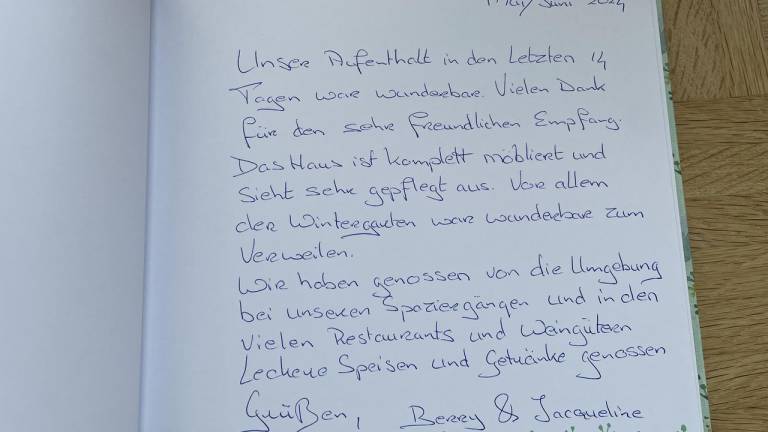 Mai/Juni 2024
Unser Aufenthalt in den Letzten 14
Tagen war wunderbar. Vielen Dank
für den sehr freundlichen Empfang.
Das Haus ist komplett möbliert und
sieht sehr gepflegt aus. Vor allem
der Wintergarten war wunderbar zum
Verweilen.
Wir haben genossen von die Umgebung
bei unseren Spaziergängen und in den
vielen Restaurants und Weingütern
Leckere Speisen und Getränke genossen
Grüßen, Berry & Jacqueline